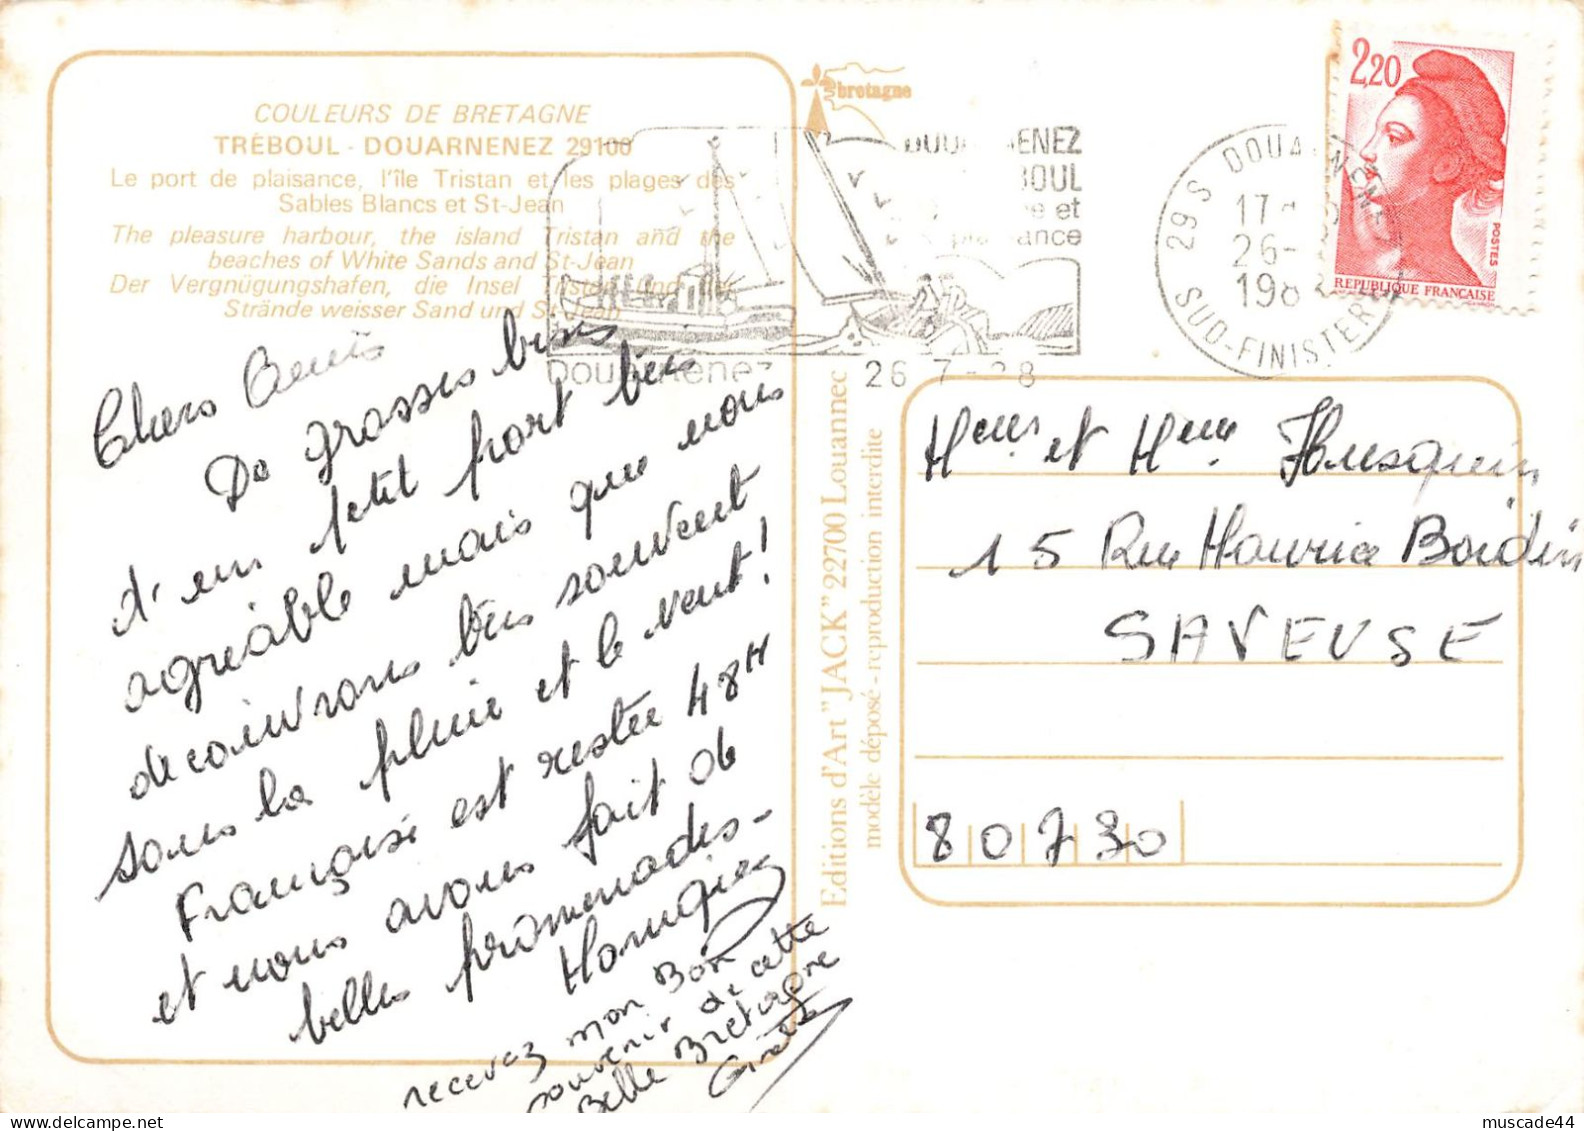 COULEURS DE BRETAGNE
TRÉBOUL - DOUARNENEZ 29100
Le port de plaisance, l'île Tristan et les plages des
Sables Blancs et St-Jean
The pleasure harbour, the island Tristan and the
beaches of White Sands and St-Jean
Der Vergnügungshafen, die Insel Tristan und der
Strände weisser Sand und St-Jean
bretagne
DOUARNENEZ
et
plaisance
Douarnenez
26 7 - 28
29 S DOUARNENEZ
17
26-
198
SUD-FINISTERE
2,20
POSTES
REPUBLIQUE FRANCAISE
Chers Amis
De grosses bises
d'un petit port très
agréable mais que nous
découvrons très souvent
sous la pluie et le vent!
Françoise est restée 48H
et nous avons fait de
belles promenades-
recevez mon Bon
souvenir de cette
Belle Bretagne
Editions d'Art "JACK" 22700 Louannec
modèle déposé - reproduction interdite
et Mme
15 Rue Maurice Boidin
SAVEUSE
80730
muscade44